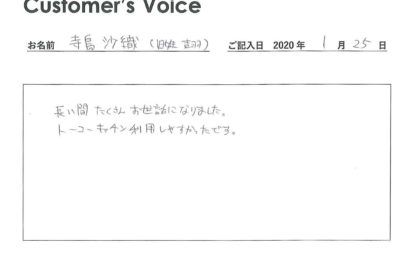 Customer's Voice
お名前 寺島 沙織 (旧姓 吉羽) ご記入日 2020 年 1 月 25 日
長い間 たくさん お世話になりました。
トーコーキッチン利用しやすかったです。